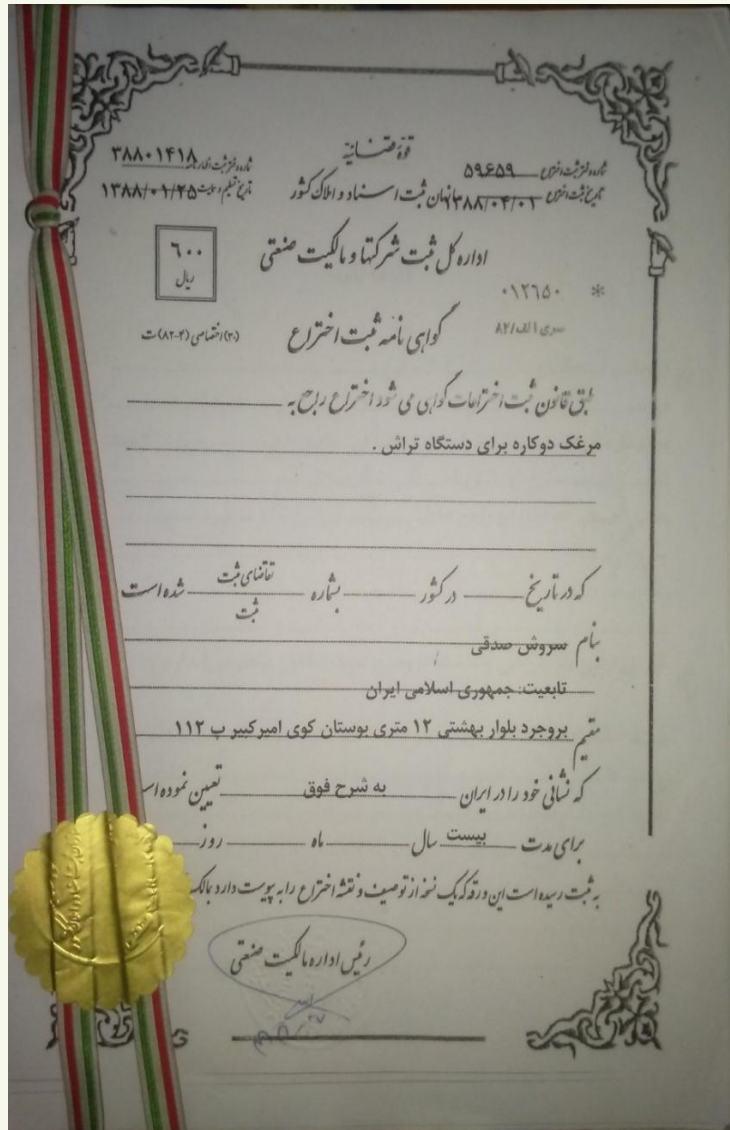 قوه قضائیه
شماره دفتر ثبت اختراع ۵۹۶۵۹
شماره دفتر ثبت اظهارنامه ۳۸۸۰۱۴۱۸
تاریخ ثبت اختراع ۱۳۸۸/۰۴/۰۱
سازمان ثبت اسناد و املاک کشور
تاریخ تسلیم و ۱۳۸۸/۰۱/۲۵
اداره کل ثبت شرکتها و مالکیت صنعتی
۶۰۰
ریال
* ۰۱۲۶۵۰
سری الف/۸۲
گواهی نامه ثبت اختراع
(۳۰) اختصاصی (۴-۸۲) ت
طبق قانون ثبت اختراعات گواهی می شود اختراع راجع به
مرغک دوکاره برای دستگاه تراش .
که در تاریخ در کشور بشماره تقاضای ثبت شده است
ثبت
بنام سروش صدقی
تابعیت: جمهوری اسلامی ایران
مقیم بروجرد بلوار بهشتی ۱۲ متری بوستان کوی امیرکبیر پ ۱۱۲
که نشانی خود را در ایران به شرح فوق تعیین نموده
برای مدت بیست سال ماه روز
به ثبت رسیده است این ورقه که یک نسخه از توصیف و نقشه اختراع را به پیوست دارد
رئیس اداره مالکیت صنعتی